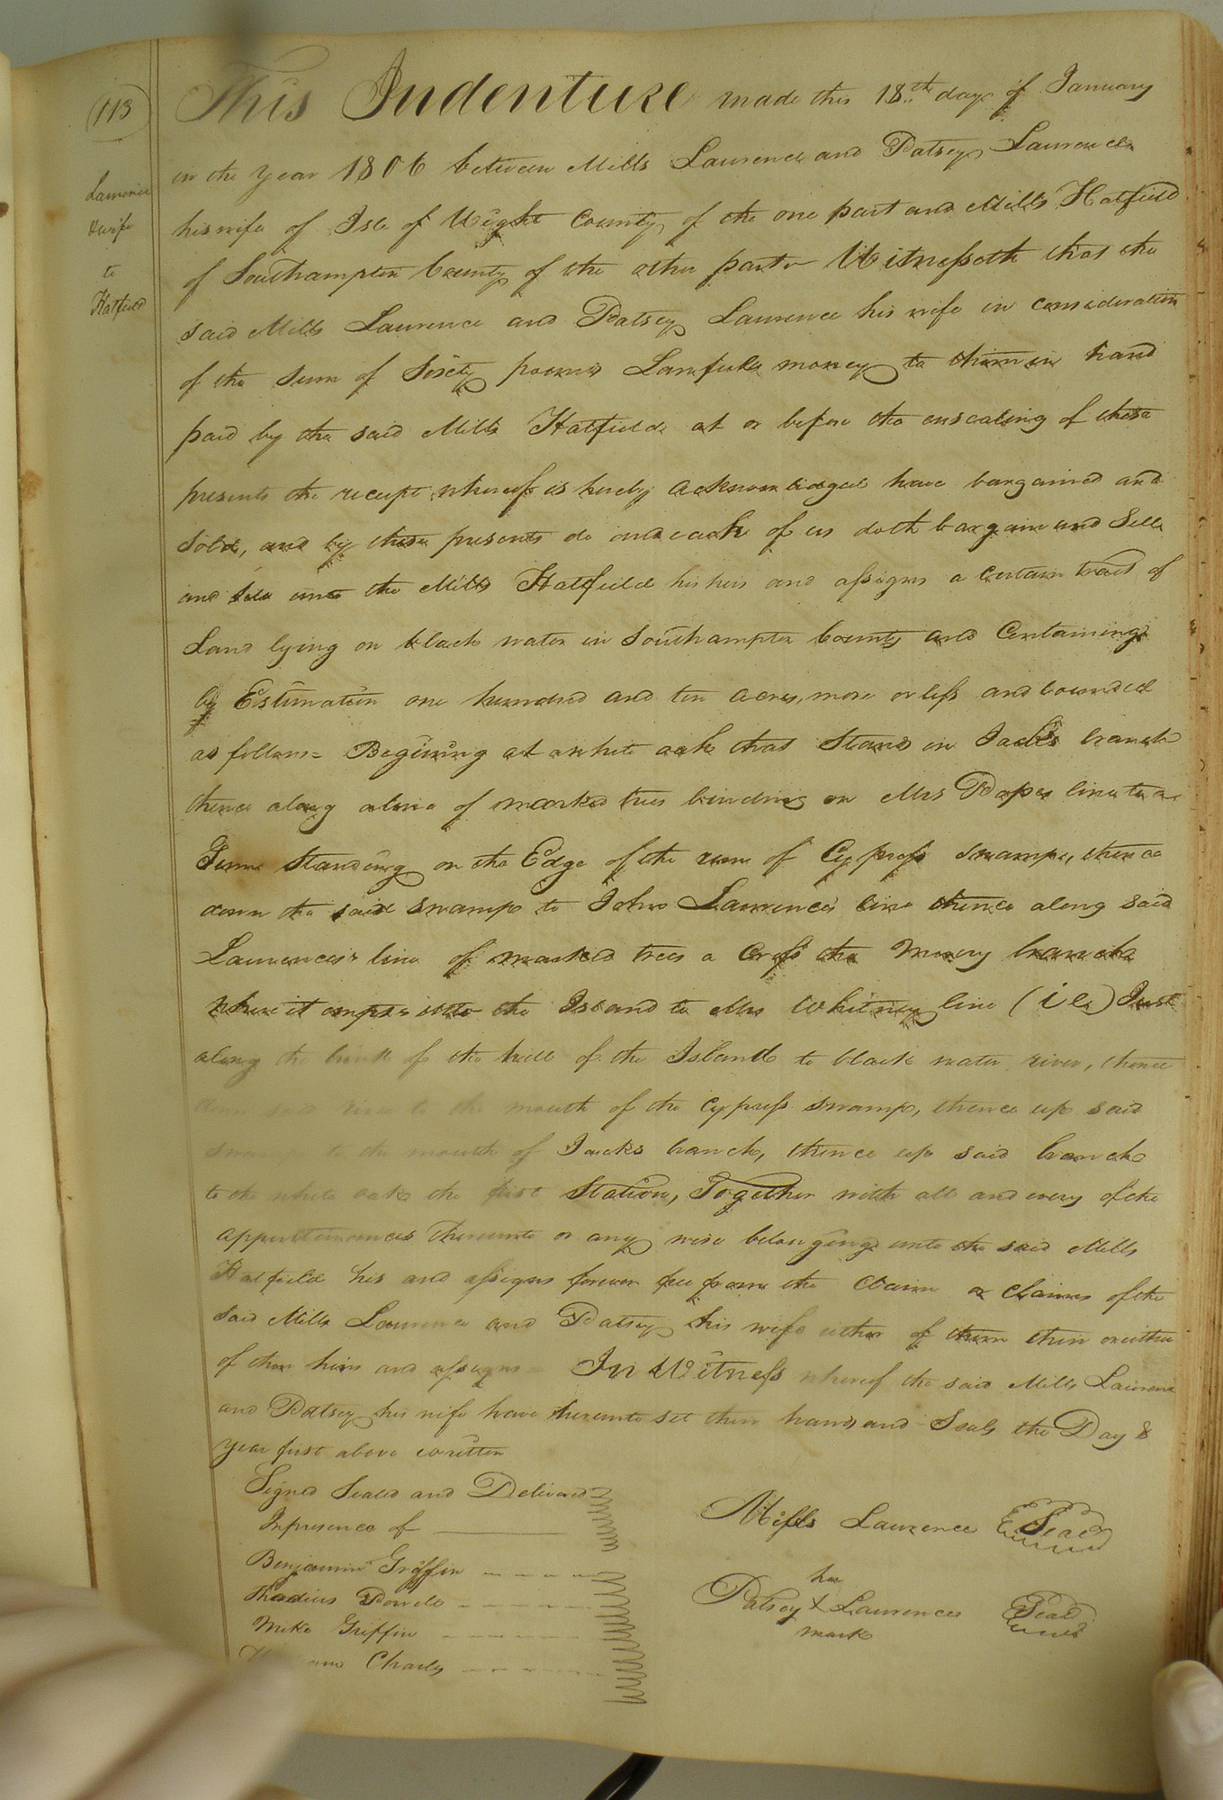 113
Lawrence
& wife
to
Hatfield
This Indenture made this 18.th day of January
in the year 1806 between Mills Laurence and Patsey Laurence
his wife of Isle of Wight County of the one part and Mills Hatfield
of Southampton County of the other part Witnesseth that the
said Mills Laurence and Patsey Laurence his wife in consideration
of the sum of Sixty pounds Lawfull money to them in hand
paid by the said Mills Hatfield at or before the ensealing of these
presents the receipt whereof is hereby acknowledged have bargained and
sold, and by these presents do and each of us doth bargain and Sell
and unto the Mills Hatfield his heirs and assigns a certain tract of
Land lying on black water in Southampton County and Containing
by Estimation one hundred and ten acres, more or less and bounded
as follows Begining at a white oak that Stands in Jacks branch
thence along a line of marked trees binding on Mrs Popes line to a
standing on the Edge of the run of Cypress swamp, thence
down the said swamp to John Laurences line thence along said
Laurences line of marked trees a Cross the Mirery branch
where it into the Island to Mrs Whitneys line (ie) Just
along the brink of the hill of the Island to black water river, thence
down said river to the mouth of the cypress swamp, thence up said
swamp to the mouth of Jacks branch, thence up said branch
to the white oak the first Station, Together with all and every of the
appurtenances thereunto or any wise belonging unto the said Mills
Hatfield his and assigns forever free from the Claim or Claims of the
said Mills Laurence and Patsey his wife either of them their or either
of their heirs and assigns In Witness whereof the said Mills Laurence
and Patsey his wife have hereunto set their hands and Seals the Day &
year first above written
Signed Sealed and Delivered
In presence of
Benjamin Griffin
Thadius Powell
Mike Griffin
Charles
Mills Laurence Seal
her
Patsey X Laurence Seal
mark